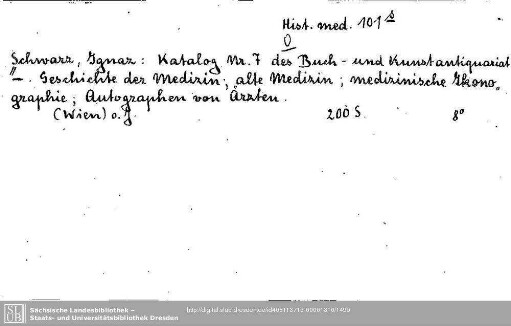 Hist. med. 101 s
0
Schwarz, Ignaz: Katalog Nr. 7 des Buch- und Kunstantiquariat
"–. Geschichte der Medizin; alte Medizin; medizinische Ikono-
graphie; Autographen von Ärzten.
(Wien) o. J. 200 S. 8°
Sächsische Landesbibliothek –
Staats- und Universitätsbibliothek Dresden